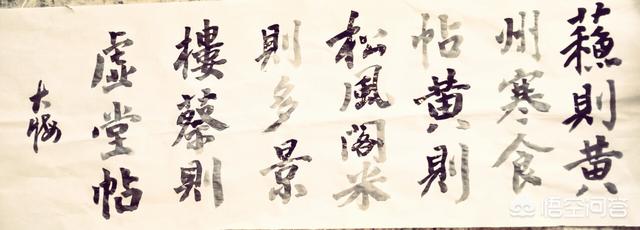 蘓則黄
州寒食
帖黄則
松風閣米
則多景
樓蔡則
虛堂帖
大
悟空问答